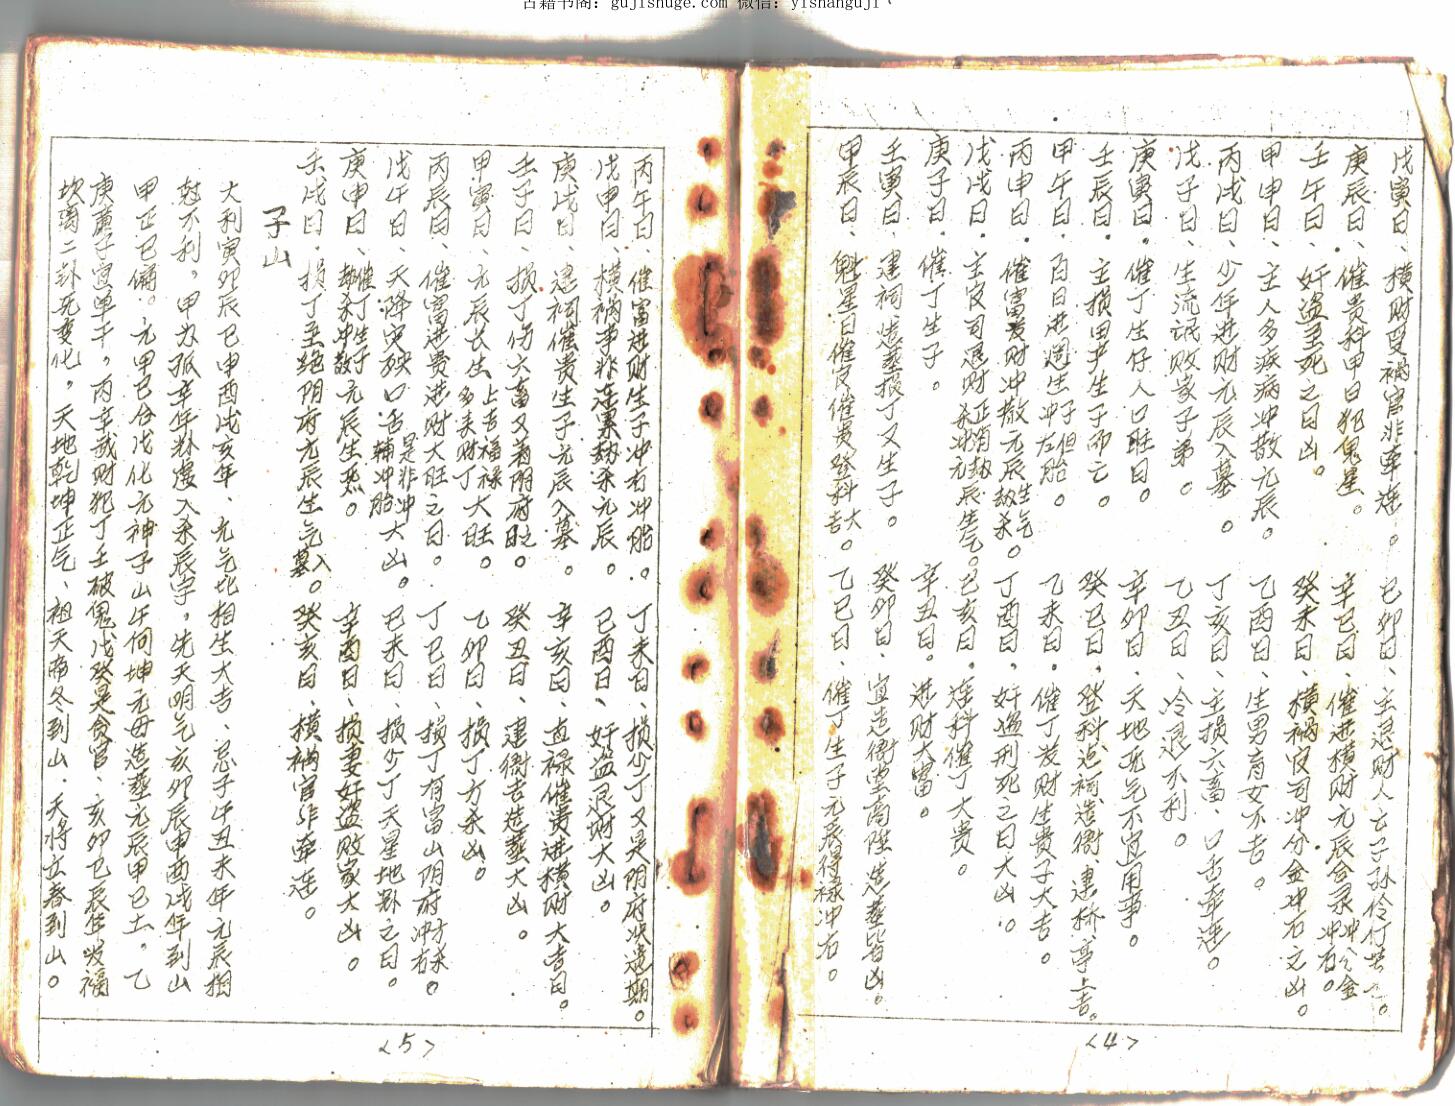 古籍书阁：gujishuge.com 微信：yishanguji
戊寅日、横财更祸官非牵连。己卯日、主退财人亡子孙伶仃
庚辰日、催贵科甲日犯鬼星。辛巳日、催进横财元辰合录冲分金冲右。
壬午日、奸盗至死之日凶。癸未日、横祸官司冲分金冲右之凶。
甲申日、主人多疾病冲散元辰。乙酉日、生男育女不吉。
丙戌日、少年进财元辰入墓。丁亥日、主损六畜、口舌牵连。
戊子日、生流氓败家子弟。乙丑日、冷退不利。
庚寅日、催丁生仔人口旺日。辛卯日、天地死气不宜用事。
壬辰日、主损田产生子而亡。癸巳日、登科追祠造衙、建桥、亭上吉。
甲午日、百日进週生子但冲左胎。乙未日、催丁发财生贵子大吉。
丙申日、催富贵财冲散元辰生气劫杀。丁酉日、奸盗刑死之日大凶。
戊戌日、主官司退财正消劫杀冲元辰生气。己亥日、连科催丁大贵。
庚子日、催丁生子。辛丑日。进财大富。
壬寅日、建祠造葬损丁又生子。癸卯日、宜造衙堂高陞造葬皆凶。
甲辰日、魁星日催官催贵登科大吉。乙巳日、催丁生子元辰得禄冲右。
<4>
丙午日、催富进财生子冲右冲胎。丁未日、损少丁又是阴府次造期。
戊申日、横祸事非连累劫杀元辰。己酉日、奸盗退财大凶。
庚戌日、建祠催贵生子元辰入墓。辛亥日、直禄催贵进横财大吉日。
壬子日、损丁伤六畜又着阴府日之。癸丑日、建衙吉造葬大凶。
甲寅日、元辰长生上吉福禄多夫财丁大旺。乙卯日、损丁方杀凶。
丙辰日、催富进贵进财大旺之日。丁巳日、损丁有富山阴府冲右方杀。
戊午日、天降灾殃口舌是非冲辅冲胎大凶。己未日、损少丁天星地卦之日。
庚申日、催丁生子劫杀冲散元辰生气。辛酉日、损妻奸盗败家大凶。
壬戌日、损丁至绝阴府元辰生气入墓。癸亥日、横祸官非牵连。
子山
大利寅卯辰巳申酉戌亥年、元气比相生大吉、忌子午丑未年元辰相
尅不利。甲为孤辛年料虚入杀辰字。先天明气亥卯辰申酉戌年到山
甲正巳补。元甲己合戊化元神子山午向坤元母造葬元辰甲己土。乙
庚葬子寅单干。丙辛武财犯丁壬破鬼戊癸是食官、亥卯巳辰年发福
坎离二卦死变化。天地乾坤正气、祖天南冬到山、天将立春到山。
<5>